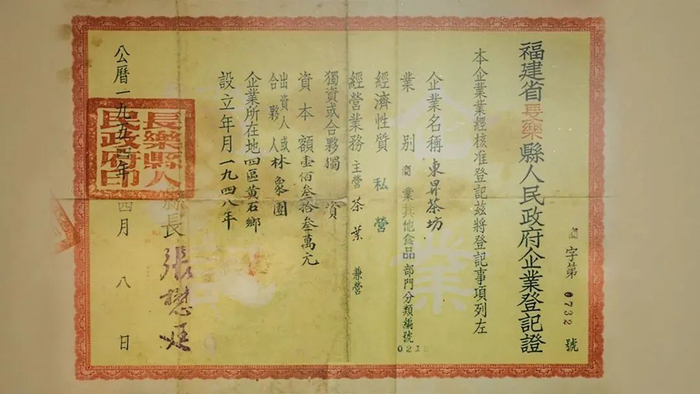 福建省長樂縣人民政府企業登記證
商字第0732號
本企業業經核准登記茲將登記事項列左
企業名稱 東昇茶坊
業別 商業其他食品部門分類編號021
經濟性質 私營
經營業務 主營 茶葉 兼營
獨資或合夥 獨資
資本額 壹佰叁拾叁萬元
出資人或合夥人 林象團
企業所在地 四區黃石鄉
設立年月 一九四八年
縣長 張懋
公曆一九五 年四月八日
長樂縣人民政府印